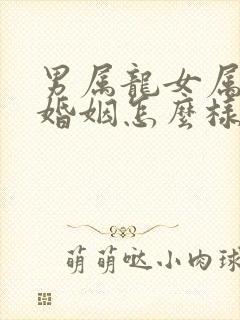 男属龍女属
婚姻怎麼様
萌萌哒小肉球